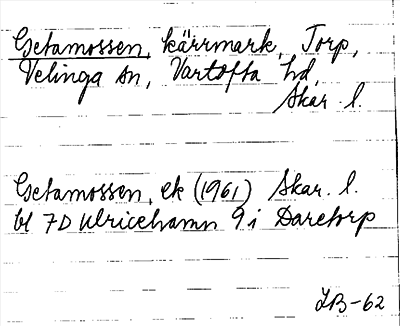 Getamossen, kärrmark, Torp,
Velinga sn, Vartofta hd,
Skar. l.
Getamossen, ek (1961) Skar. l.
bl 7D Ulricehamn 9i Daretorp
JB-62